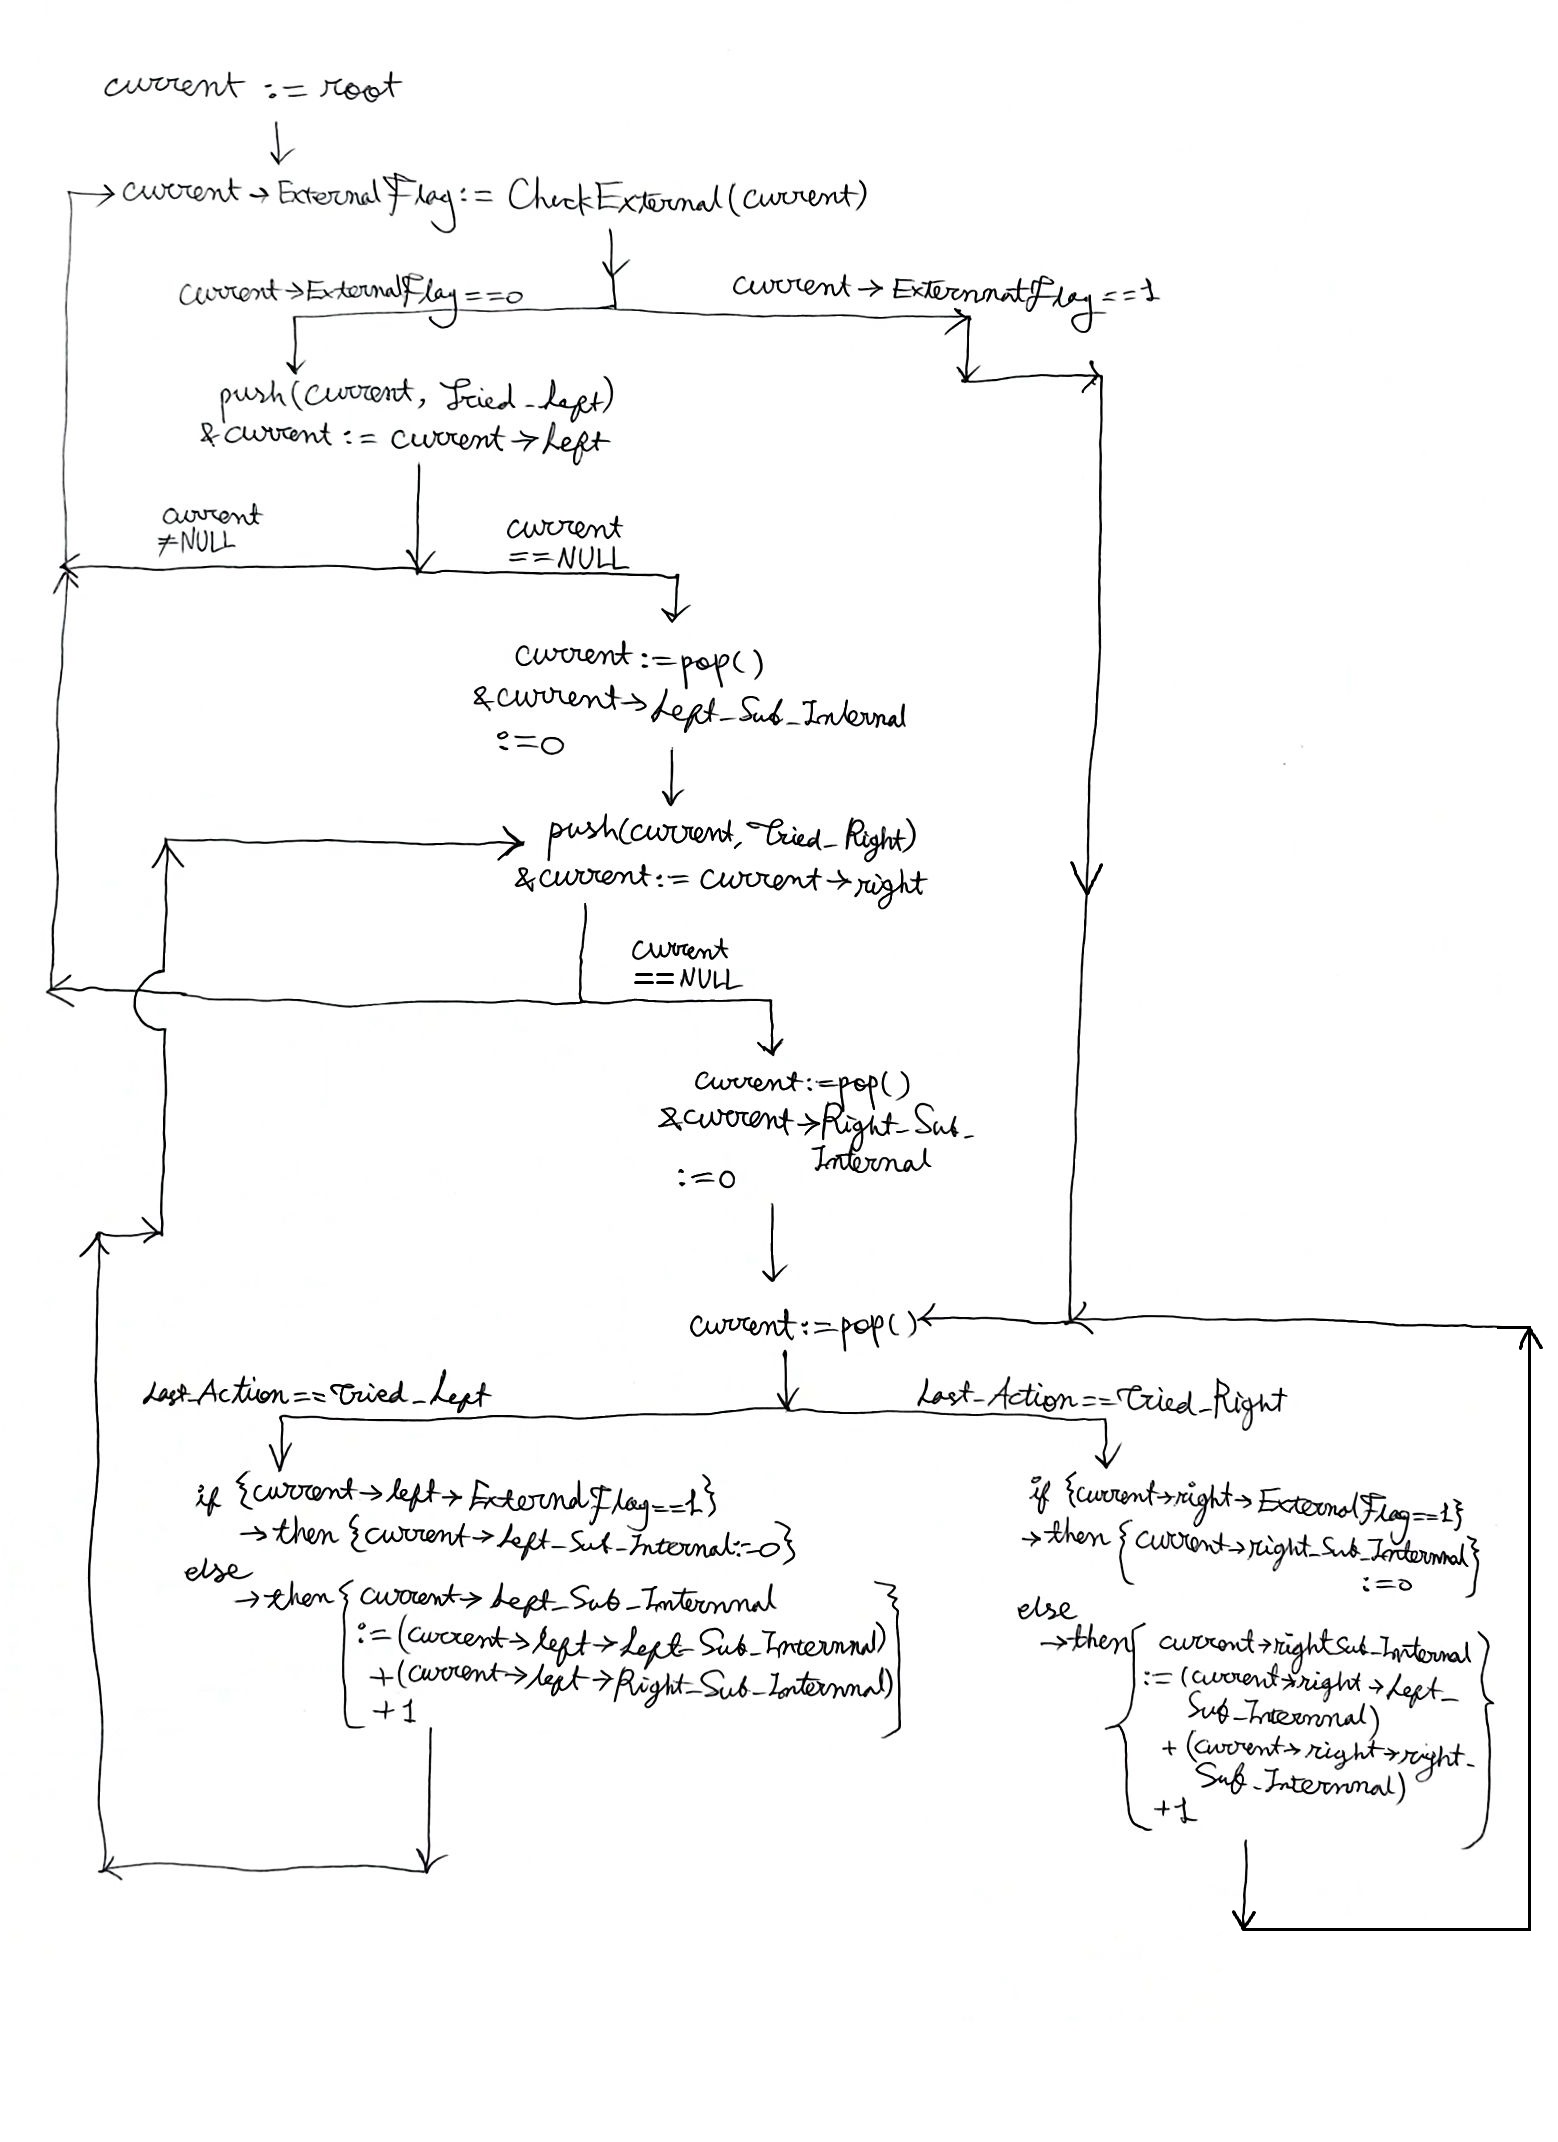 current := root
current → ExternalFlag := CheckExternal(current)
current → ExternalFlag == 0
current → ExternnatFlag == 1
push(current, Tried_Left)
& current := current → Left
current
≠ NULL
current
== NULL
current := pop()
& current → Left_Sub_Internal
:= 0
push(current, Tried_Right)
& current := current → right
current
== NULL
current := pop()
& current → Right_Sub_
Internal
:= 0
current := pop()
Last_Action == Tried_Left
Last_Action == Tried_Right
if {current → left → ExternalFlag == 1}
→ then {current → Left_Sub_Internal := 0}
else
→ then { current → Left_Sub_Internnal
:= (current → left → Left_Sub_Internnal)
+ (current → left → Right_Sub_Internnal)
+ 1 }
if {current → right → ExternalFlag == 1}
→ then { current → right_Sub_Internnal
:= 0 }
else
→ then { current → rightSub_Internal
:= (current → right → Left_
Sub_Internnal)
+ (current → right → right_
Sub_Internnal)
+ 1 }